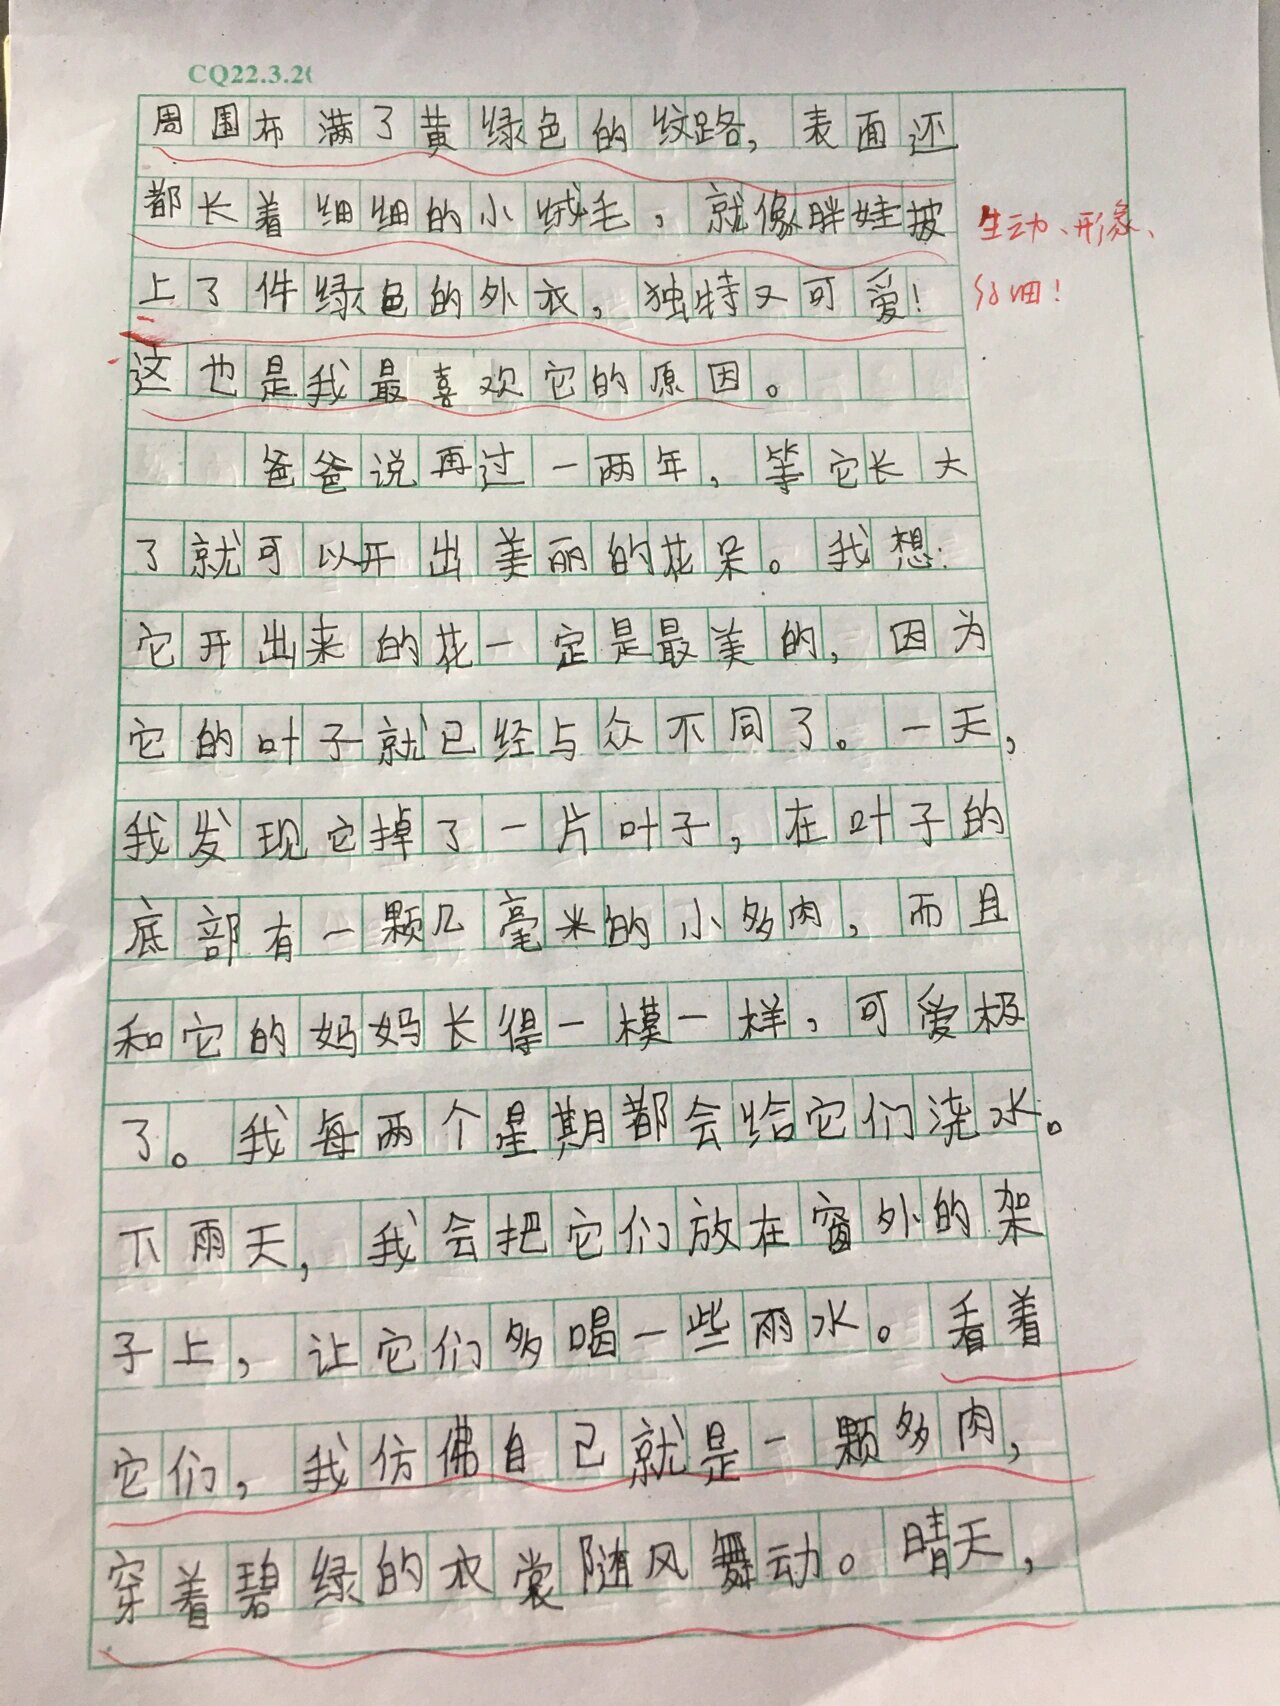 CQ22.3.2
周围布满了黄绿色的纹路，表面还
都长着细细的小绒毛，就像胖娃披
上了件绿色的外衣，独特又可爱！
这也是我最喜欢它的原因。
爸爸说再过一两年，等它长大
了就可以开出美丽的花朵。我想：
它开出来的花一定是最美的，因为
它的叶子就已经与众不同了。一天，
我发现它掉了一片叶子，在叶子的
底部有一颗几毫米的小多肉，而且
和它的妈妈长得一模一样，可爱极
了。我每两个星期都会给它们浇水。
下雨天，我会把它们放在窗外的架
子上，让它们多喝一些雨水。看着
它们，我仿佛自己就是一颗多肉，
穿着碧绿的衣裳随风舞动。晴天，
生动、形象、
仔细！